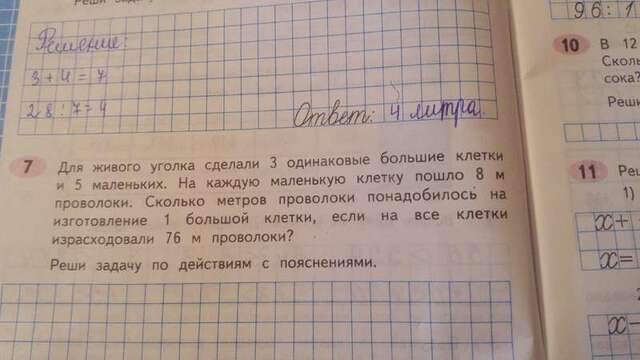 Решение:
3 + 4 = 7
28 : 7 = 4
Ответ: 4 литра.
7 Для живого уголка сделали 3 одинаковые большие клетки
и 5 маленьких. На каждую маленькую клетку пошло 8 м
проволоки. Сколько метров проволоки понадобилось на
изготовление 1 большой клетки, если на все клетки
израсходовали 76 м проволоки?
Реши задачу по действиям с пояснениями.
96 : 1
10 В 12
Сколь
сока?
Реши
11 Реш
1)
x +
x =
x −